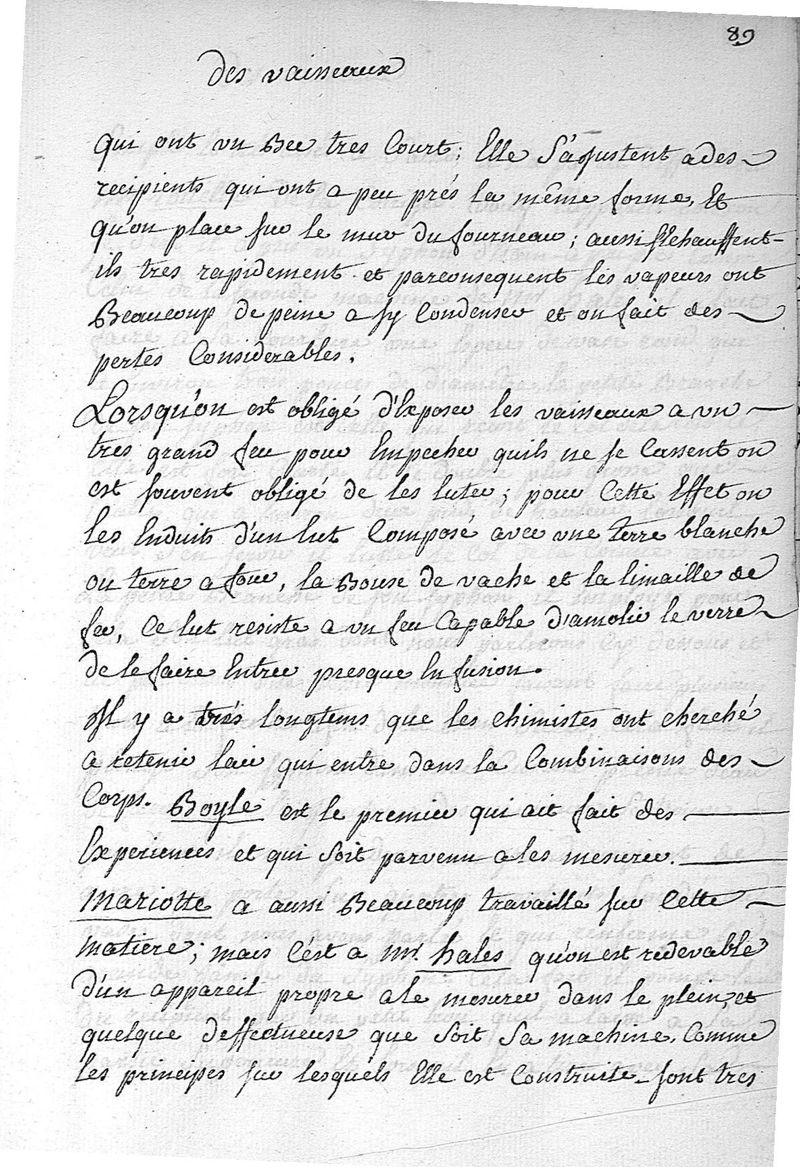 89
des vaisseaux
qui ont un Bec tres Court; Elle S'ajustent a des
recipients qui ont a peu prés la même forme, Et
qu'on place sur le mur du fourneau; aussi s'Echauffent-
ils tres rapidement et parconsequent les vapeurs ont
Beaucoup de peine a sy Condenser et on fait des
pertes Considerables.
Lorsqu'on est obligé d'Exposer les vaisseaux a un
tres grand feu pour Empecher quils ne se Cassent on
est souvent obligé de les luter; pour Cette Effet on
les Enduits d'un lut Composé avec une terre blanche
ou terre a four, la Bouse de vache et la limaille de
fer, Ce lut resiste a un feu Capable d'amolir le verre
de le faire Entrer presque En fusion.
Il y a trés longtems que les Chimistes ont cherché
a retenir lair qui entre dans la Combinaisons des
Corps. Boyle est le premier qui ait fait des
Experiences et qui soit parvenu a les mesurer.
Mariotte a aussi Beaucoup travaillé sur Cette
matiere; mais C'est a Mr. hales qu'on est redevable
d'un appareil propre a le mesurer dans le plein, et
quelque deffectueuse que Soit Sa machine, Comme
les principes sur lesquels Elle est Construite sont tres